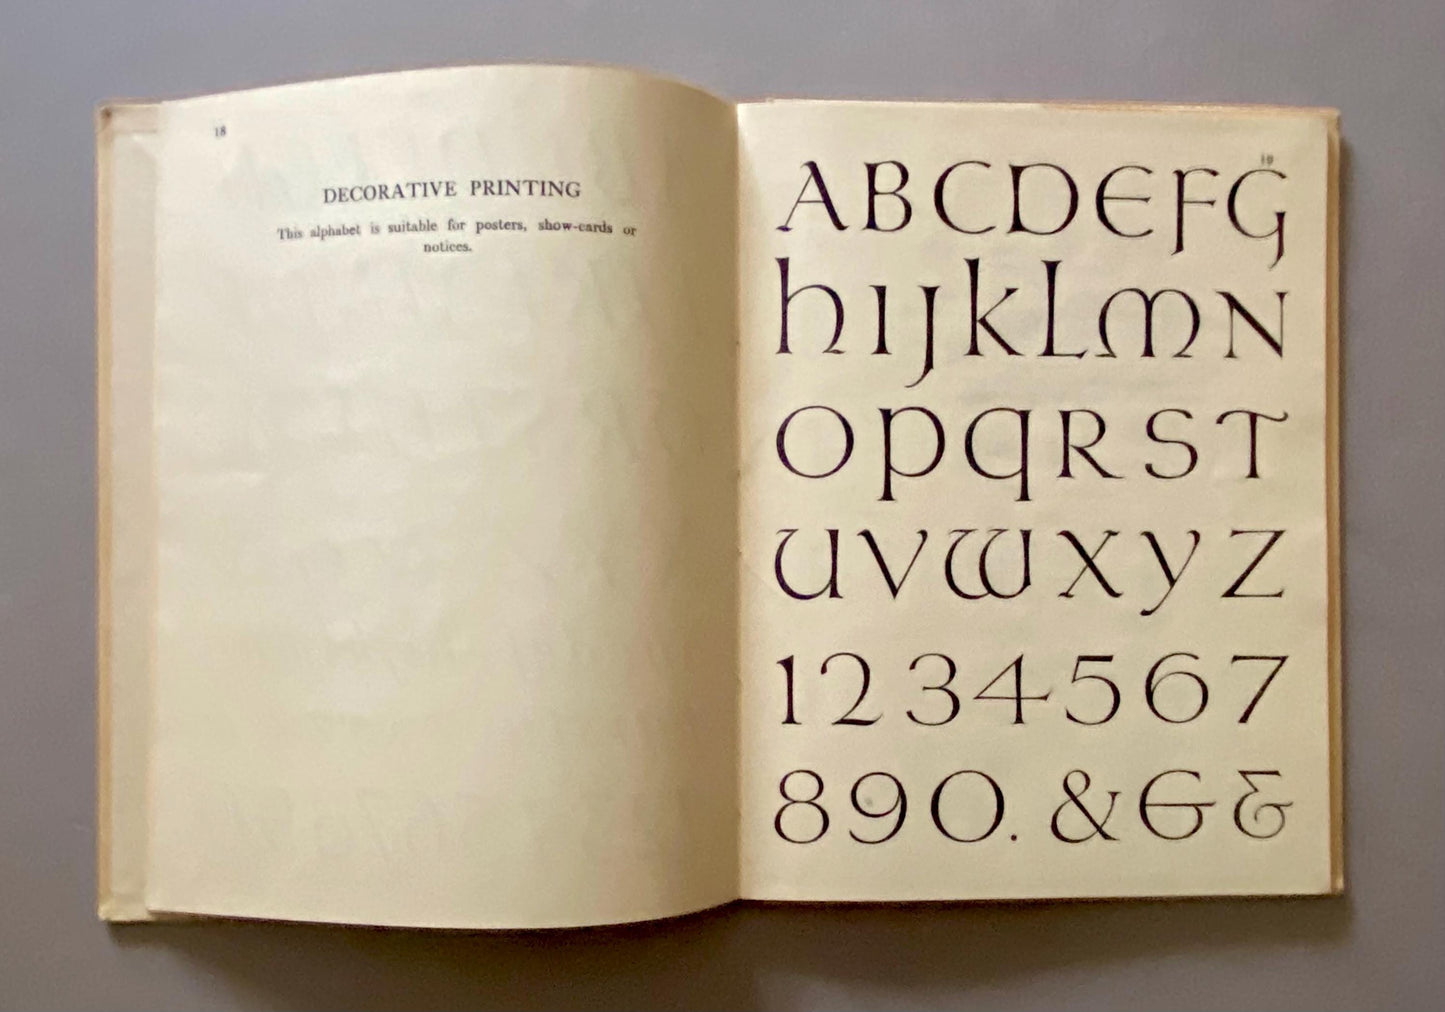 18
DECORATIVE PRINTING
This alphabet is suitable for posters, show-cards or
notices.
19
ABCDEFG
hIJklMN
OpqRST
UVWXyZ
1234567
890. &&&